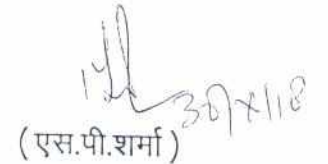 30/X/18
(एस.पी.शर्मा)